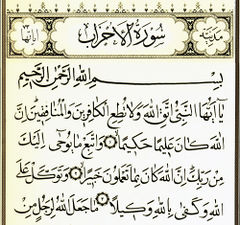 مدنية سورة الاحزاب آياتها ٧٣
بِسْمِ اللهِ الرَّحْمٰنِ الرَّحِيمِ
يَا أَيُّهَا النَّبِيُّ اتَّقِ اللهَ وَلَا تُطِعِ الْكَافِرِينَ وَالْمُنَافِقِينَ إِنَّ
اللهَ كَانَ عَلِيمًا حَكِيمًا وَاتَّبِعْ مَا يُوحَى إِلَيْكَ
مِنْ رَبِّكَ إِنَّ اللهَ كَانَ بِمَا تَعْمَلُونَ خَبِيرًا وَتَوَكَّلْ عَلَى
اللهِ وَكَفَى بِاللهِ وَكِيلًا مَا جَعَلَ اللهُ لِرَجُلٍ مِنْ